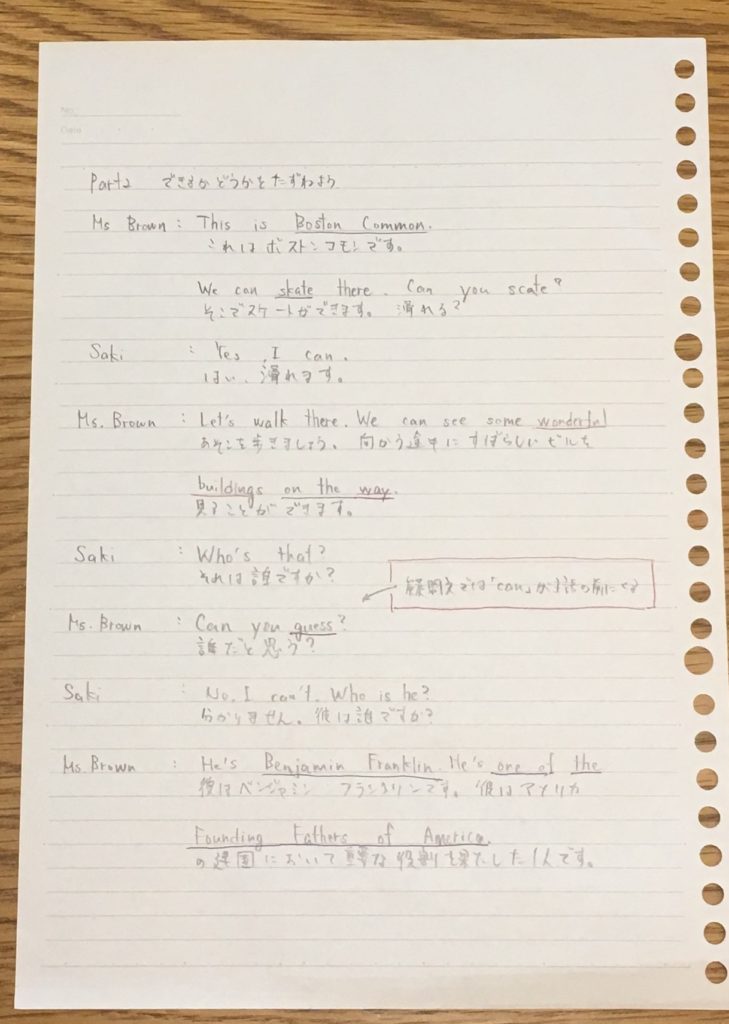 No.
Date
Part2 できるかどうかをたずねよう
Ms Brown : This is Boston Common.
これはボストンコモンです。
We can skate there. Can you scate?
そこでスケートができます。 滑れる?
Saki : Yes, I can.
はい、滑れます。
Ms. Brown : Let's walk there. We can see some wonderful
あそこを歩きましょう。 向かう途中にすばらしいビルを
buildings on the way.
見ることができます。
Saki : Who's that?
それは誰ですか?
疑問文では「can」が主語の前にくる
Ms. Brown : Can you guess?
誰だと思う?
Saki : No, I can't. Who is he?
分かりません。彼は誰ですか?
Ms. Brown : He's Benjamin Franklin. He's one of the
彼はベンジャミン フランクリンです。彼はアメリカ
Founding Fathers of America.
の建国において重要な役割を果たした1人です。